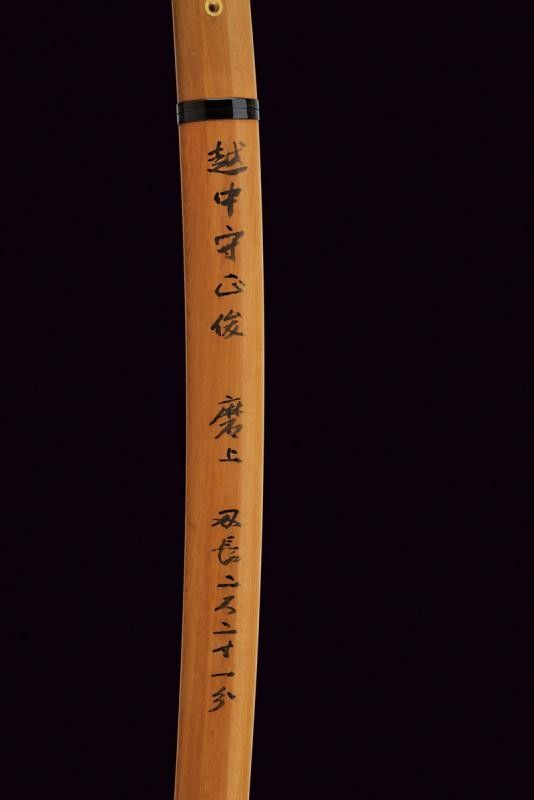 越中守正俊 磨上 刃長二尺二寸一分